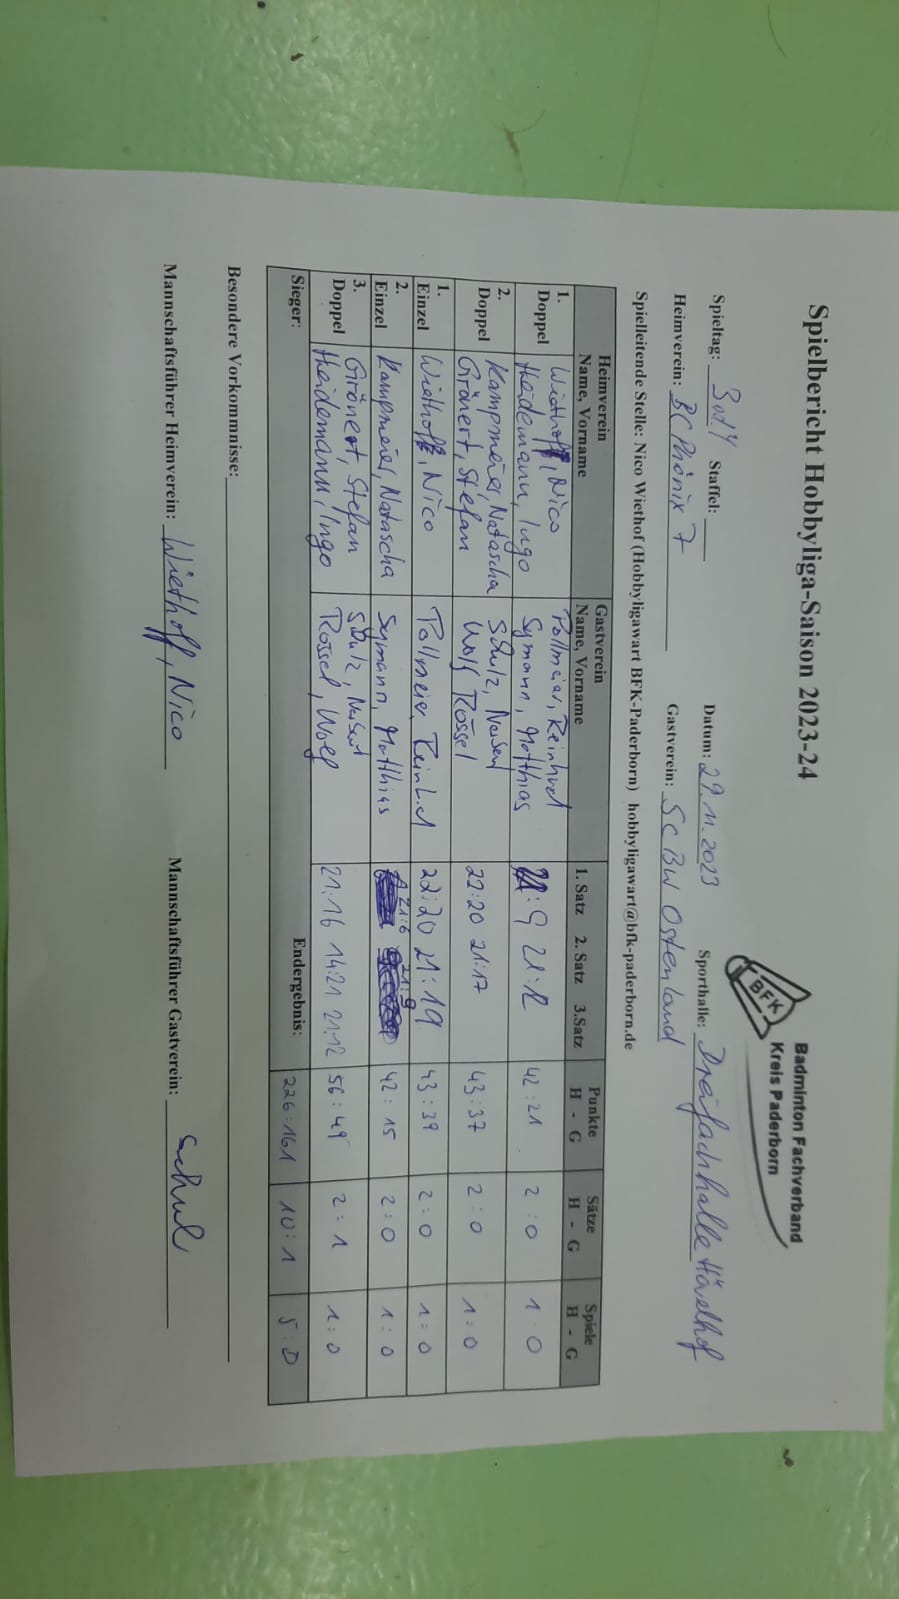 Spielbericht Hobbyliga-Saison 2023-24
BFK
Badminton Fachverband
Kreis Paderborn
Spieltag: 3 und 4 Staffel: Datum: 29.11.2023 Sporthalle: Dreifachhalle Hövelhof
Heimverein: BC Phönix 7 Gastverein: SC BW Ostenland
Spielleitende Stelle: Nico Wiethof (Hobbyligawart BFK-Paderborn) hobbyligawart@bfk-paderborn.de
Heimverein Gastverein 1. Satz 2. Satz 3.Satz Punkte Sätze Spiele
Name, Vorname Name, Vorname H - G H - G H - G
1. Wiethoff, Nico Pollmeier, Reinhard
Doppel Heidemann, Ingo Symann, Matthias 21:9 21:12 42:21 2:0 1:0
2. Kampmeier, Natascha Schulz,
Doppel Grönert, Stefan Wolf Rössel 22:20 21:17 43:37 2:0 1:0
1. Wiethoff, Nico Pollmeier, 22:20 21:19 43:39 2:0 1:0
Einzel
2. Kampmeier, Natascha Symann, Matthias 21:6 21:9 42:15 2:0 1:0
Einzel
3. Grönert, Stefan Schulz,
Doppel Heidemann, Ingo Rössel, Wolf 21:16 14:21 21:12 56:49 2:1 1:0
Sieger: Endergebnis: 226:161 10:1 5:0
Besondere Vorkommnisse:
Mannschaftsführer Heimverein: Wiethoff, Nico Mannschaftsführer Gastverein: